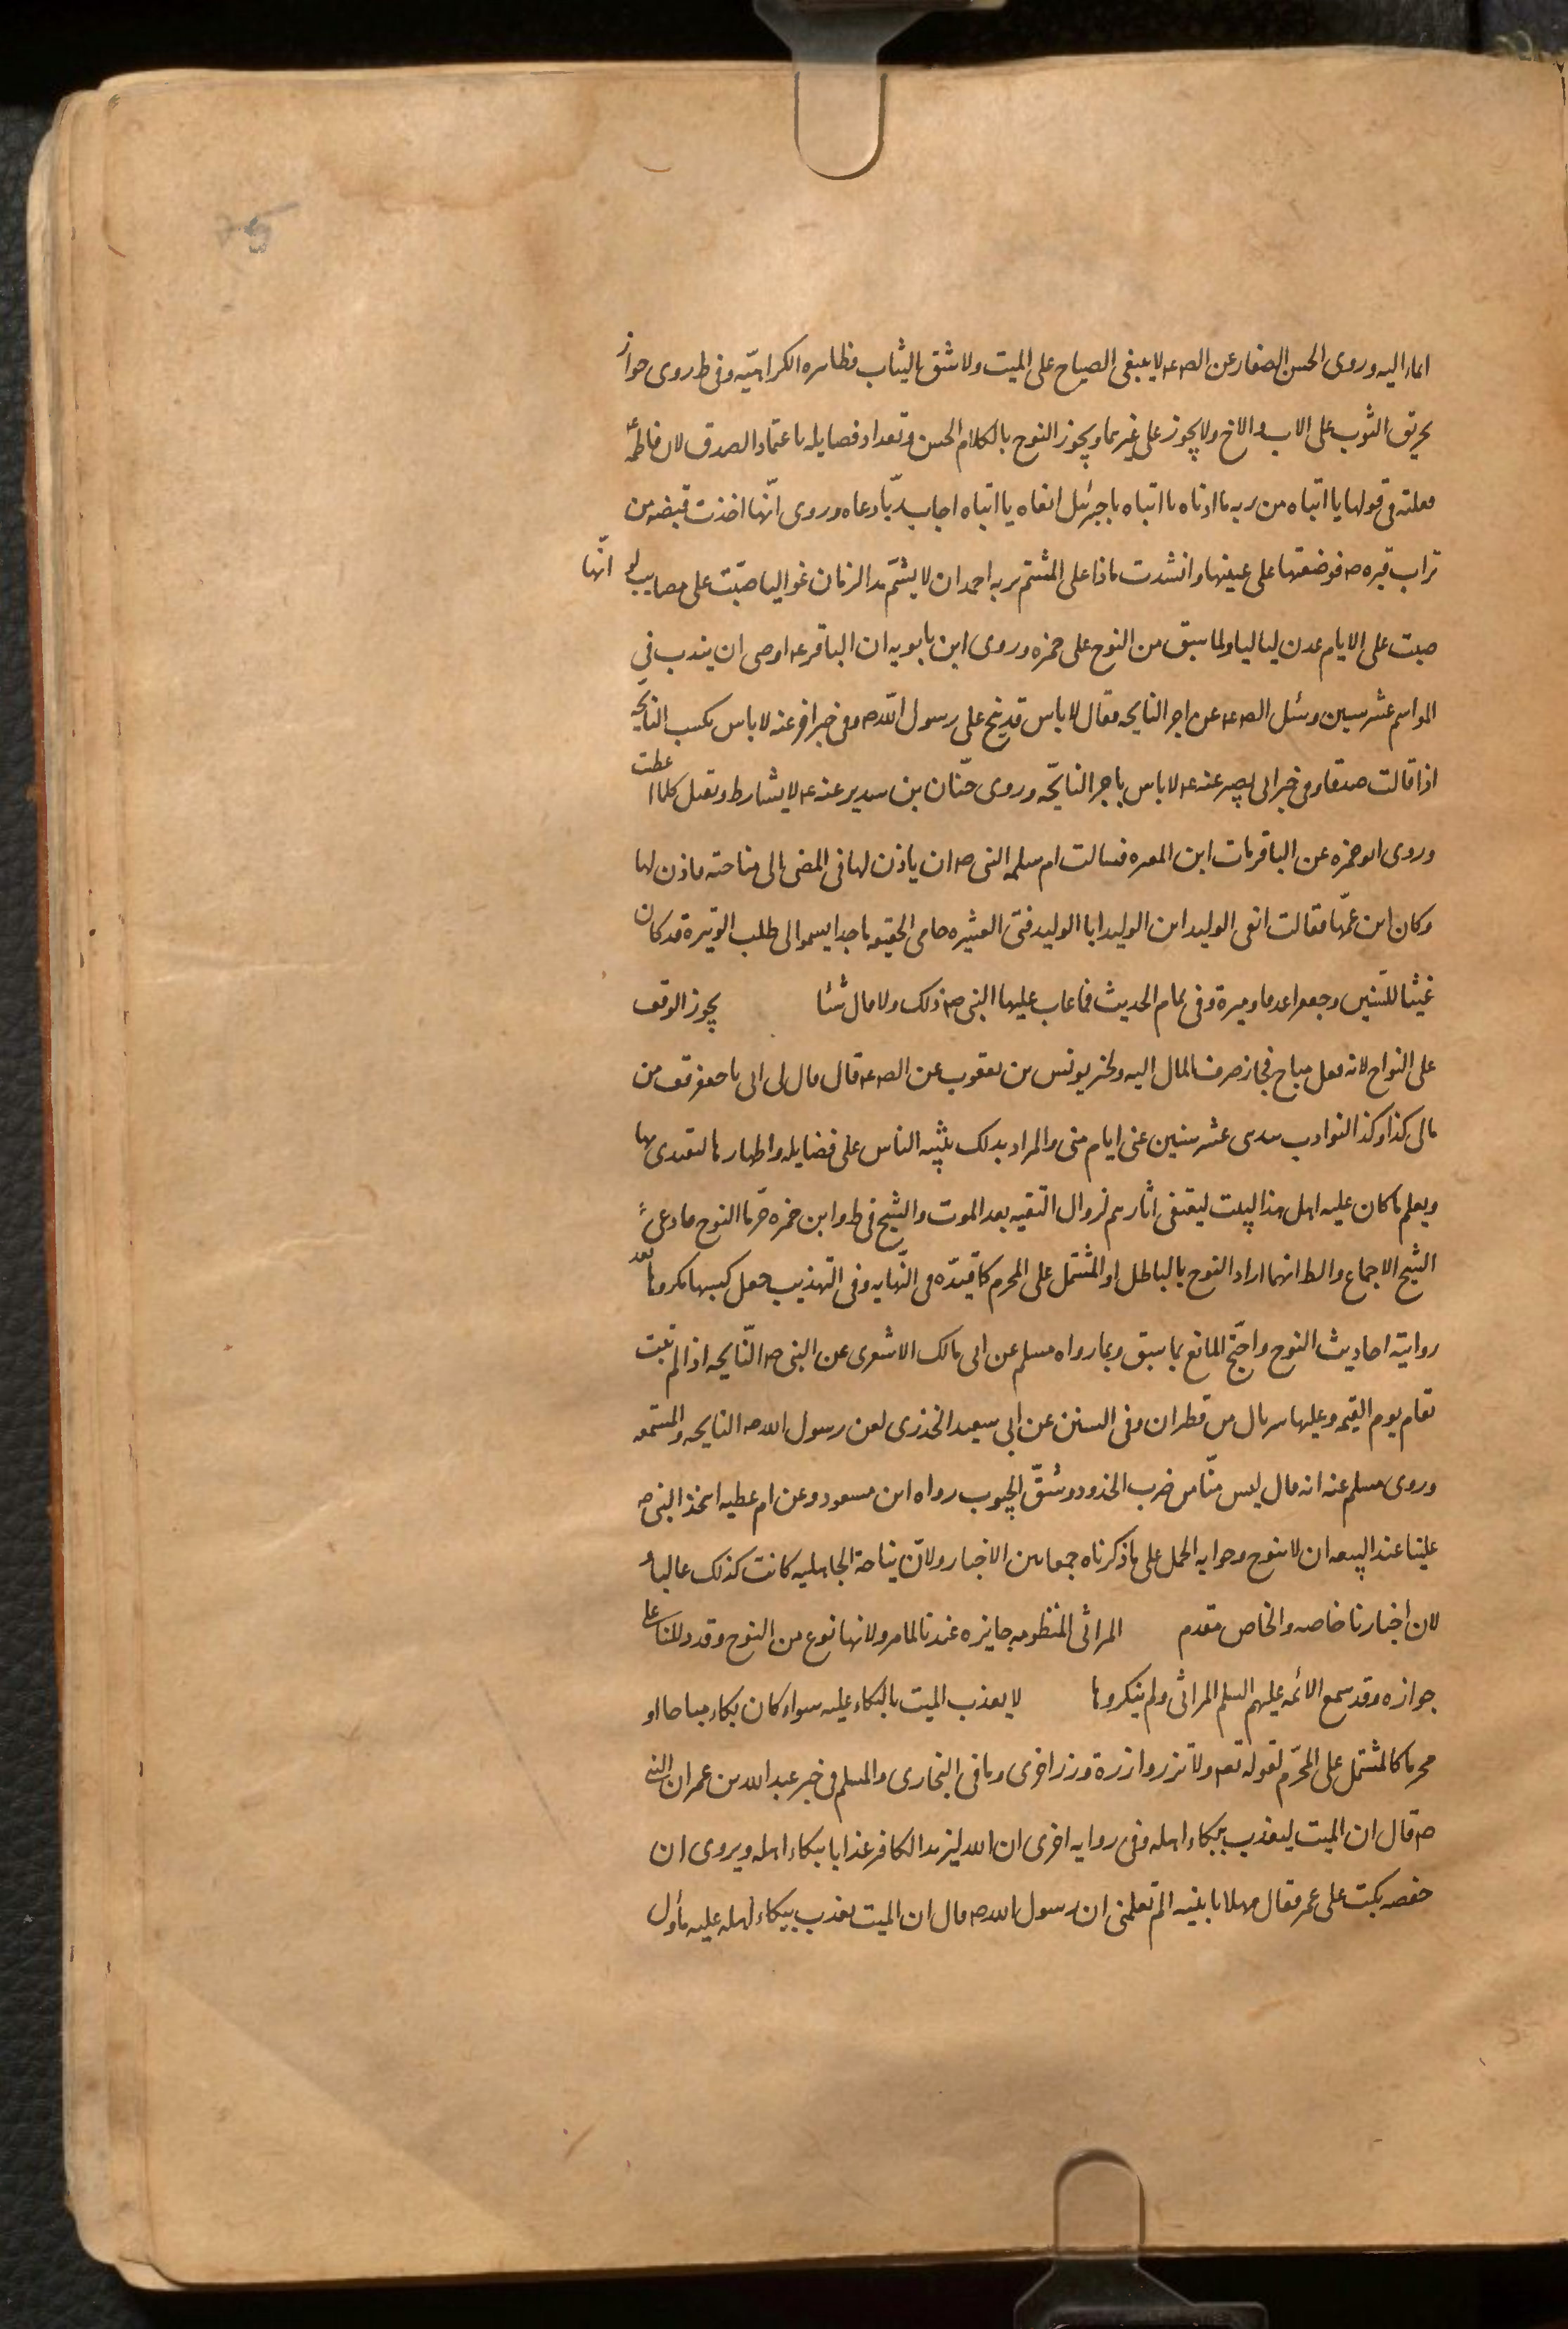 ايماء اليه وروى الحسن الصفار عن الص ع لا ينبغى الصياح على الميت ولا شق الثياب فظاهره الكراهيّه وفى ط روى جواز
تحريق الثوب على الاب والاخ ولا يجوز على غيرهما ويجوز النوح بالكلام الحسن وتعداد فضايله باعتماد الصدق لان فاطمه ع
فعلته فى قولها يا ابتاه من ربه ما ادناه يا ابتاه يا جبرئيل انعاه يا ابتاه اجاب ربّا دعاه وروى انّها اخذت قبضه من
تراب قبره ص فوضعتها على عينها وانشدت ماذا على المشتم تربه احمد ان لا يشتمّ مدا الزمان غواليا صبّت على مصايب لو انّها
صبت على الايام عدن لياليا ولما سبق من النوح على حمزه وروى ابن بابويه ان الباقر ع اوصى ان يندب فى
المواسم عشر سنين وسئل الص ع عن اجر النايحه فقال لا باس قد نيح على رسول اللّه ص وفى خبر اخر عنه لا باس بكسب النايحه
اذا قالت صدقا وفى خبر ابى بصير عنه ع لا باس باجر النايحّه وروى حنّان بن سدير عنه ع لا يشارط وتقبل كلما اعطت
وروى ابو حمزه عن الباقر مات ابن المغيره فسالت ام سلمه النبى ص ان ياذن لها فى المضى الى مناحته فاذن لها
وكان ابن عمّها فقالت انعى الوليد ابن الوليد ابا الوليد فتى العشيره حامى الحقيقه ماجدا يسموا الى طلب الوتيرة قد كان
غيثا للسّنين وجعفرا غدقا وميرة وفى تمام الحديث فما عاب عليها النبى ص ذلك ولا قال شيئا يجوز الوقف
على النواح لانه فعل مباح فجاز صرف المال اليه ولخبر يونس بن يعقوب عن الص ع قال قال لى ابى يا جعفر قف من
مالى كذا وكذا النوادب يندبنى عشر سنين بمنى ايام منى والمراد بذلك تنبيه الناس على فضايله واظهارها لتقتدى بها
ويعلم ما كان عليه اهل هذا البيت ليقتفى اثارهم لزوال التقيه بعد الموت والشيخ فى ط وابن حمزه حرّما النوح وادعى
الشيخ الاجماع والظ انهما ارادا النوح بالباطل او المشتمل على المحرم كما قيّده فى النّهايه وفى التهذيب جعل كسبها مكروها بعد
رواية احاديث النوح واحتّج المانع بما سبق وبما رواه مسلم عن ابى مالك الاشعرى عن النبى ص النّايحه اذا لم تتب
تقام يوم القيمه وعليها سربال من قطران وفى السنن عن ابى سعيد الخدرى لعن رسول الله ص النايحه والمستمعه
وروى مسلم عنه انه قال ليس منّا من ضرب الخدود وشقّ الجيوب رواه ابن مسعود وعن ام عطيه اخذ النبى ص
علينا عند البيعه ان لا ننوح وجوابه الحمل على ما ذكرناه جمعا بين الاخبار ولانّ نياحة الجاهليه كانت كذلك غالبا و
لان اخبارنا خاصه والخاص مقدم المراثى المنظومه جايزه عندنا لما مر ولانها نوع من النوح وقد دللنا على
جوازه وقد سمع الائمه عليهم السلم المراثى ولم ينكروها لا يعذب الميت بالبكاء عليه سواء كان بكاء مباحا او
محرما كالمشتمل على المحرّم لقوله تع ولا تزر وازرة وزر اخرى وما فى البخارى والمسلم فى خبر عبد الله بن عمر ان النبى
ص قال ان الميت ليعذب ببكاء اهله وفى روايه اخرى ان الله ليزيد الكافر عذابا ببكاء اهله ويروى ان
حفصه بكت على عمر فقال مهلا يا بنيه الم تعلمى ان رسول الله ص قال ان الميت يعذب ببكاء اهله عليه ماول